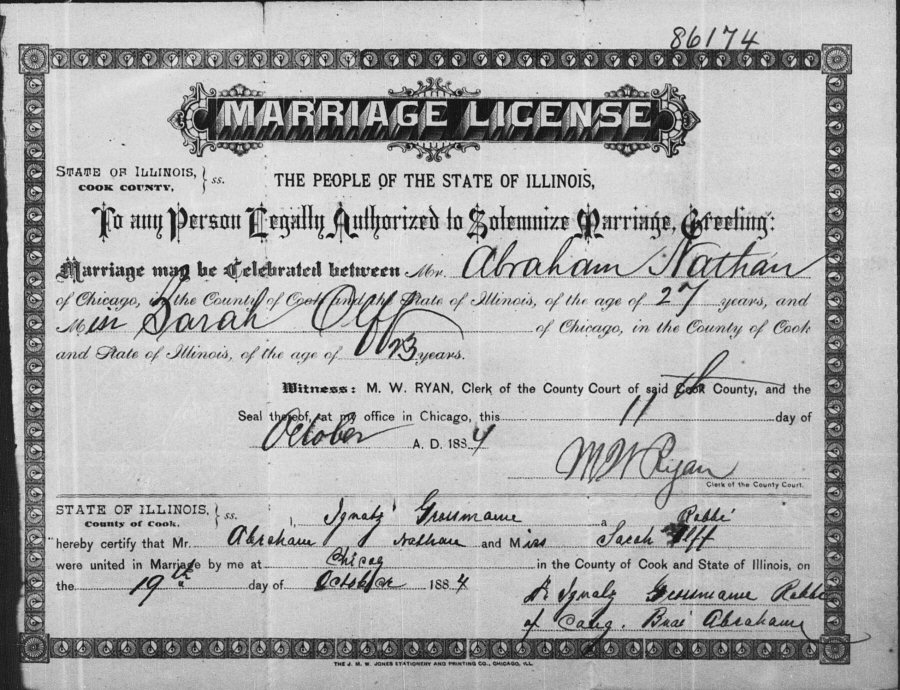 86174
MARRIAGE LICENSE
STATE OF ILLINOIS,
COOK COUNTY, } ss.
THE PEOPLE OF THE STATE OF ILLINOIS,
To any Person Legally Authorized to Solemnize Marriage, Greeting:
Marriage may be Celebrated between Mr. Abraham Nathan
of Chicago, in the County of Cook and the State of Illinois, of the age of 27 years, and
Miss Sarah Olff of Chicago, in the County of Cook
and State of Illinois, of the age of 23 years.
Witness: M. W. RYAN, Clerk of the County Court of said Cook County, and the
Seal thereof, at my office in Chicago, this 11th day of
October A. D. 1884
M W Ryan
Clerk of the County Court.
STATE OF ILLINOIS,
County of Cook, } ss.
I, Ignatz Grossmann a Rabbi
hereby certify that Mr. Abraham Nathan and Miss Sarah Olff
were united in Marriage by me at Chicag in the County of Cook and State of Illinois, on
the 19th day of October 1884
Ignatz Grossmann Rabbi
of Cong. Bnai Abraham
THE J. M. W. JONES STATIONERY AND PRINTING CO., CHICAGO, ILL.